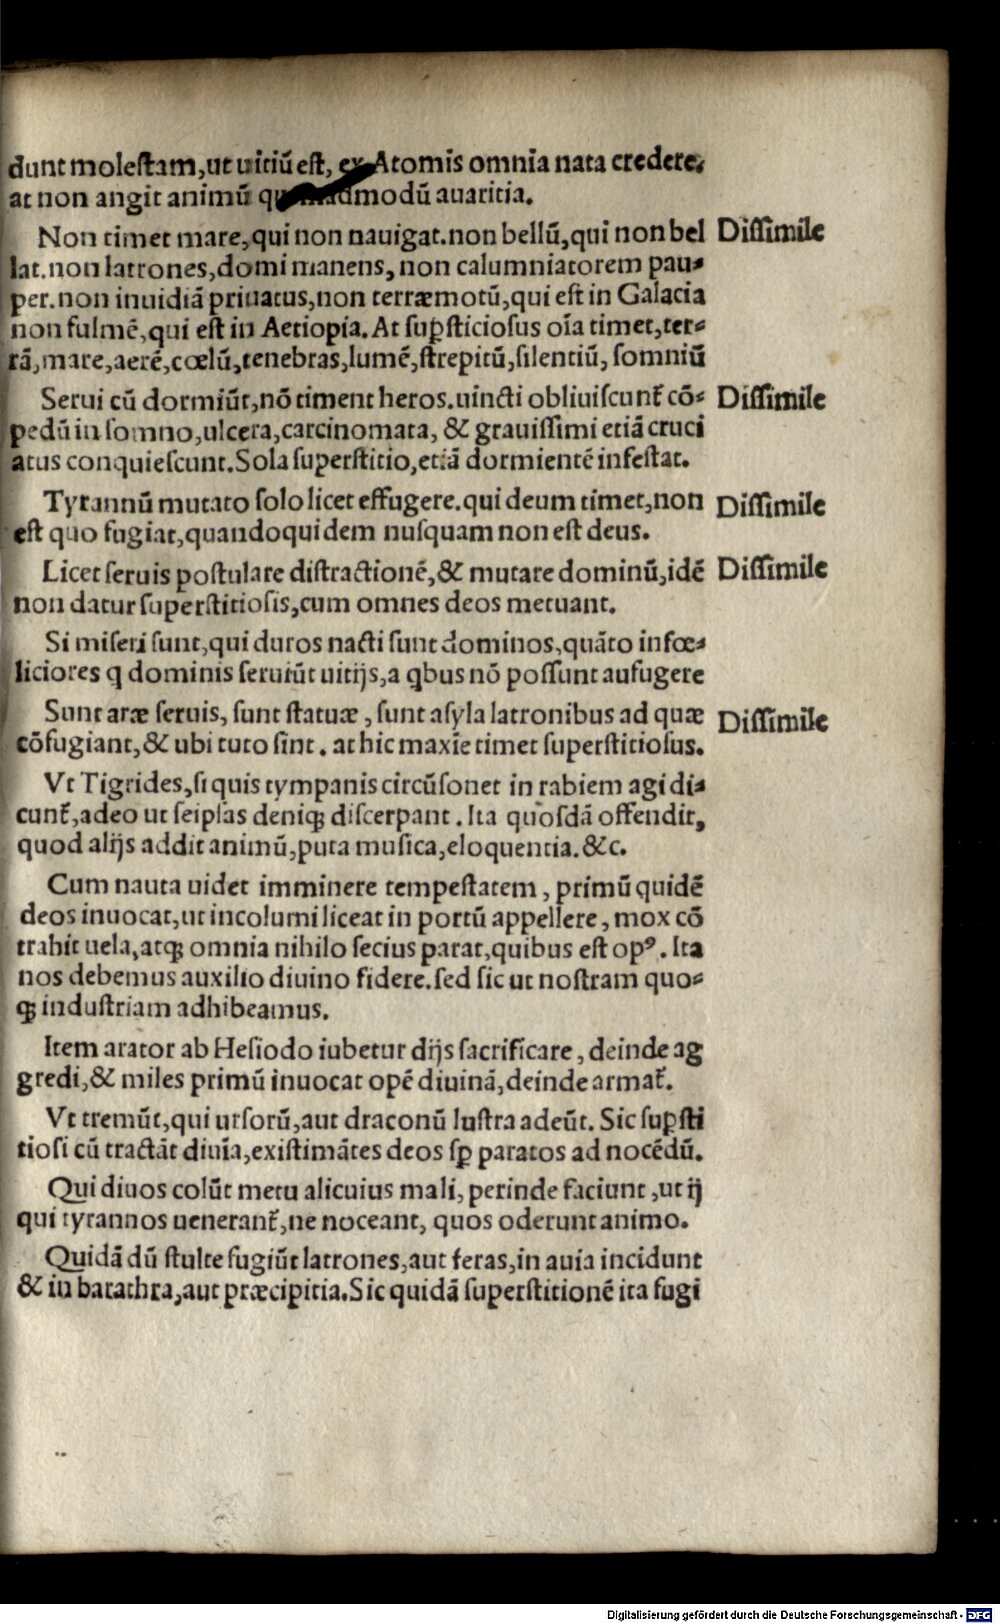 dunt molestam,ut uitiũ est, ex Atomis omnia nata credere,
at non angit animũ quemadmodũ auaritia.
Non timet mare,qui non nauigat.non bellũ,qui non bel Dissimile
lat.non latrones,domi manens, non calumniatorem pau-
per.non inuidiã priuatus,non terræmotũ,qui est in Galacia
non fulmẽ,qui est in Aetiopia. At suꝑsticiosus oĩa timet,ter-
rã,mare,aerẽ,cœlũ,tenebras,lumẽ,strepitũ,silentiũ, somniũ
Serui cũ dormiũt,nõ timent heros.uincti obliuiscunt̃ cõ- Dissimile
pedũ in somno,ulcera,carcinomata, & grauissimi etiã cruci
atus conquiescunt.Sola superstitio,etiã dormientẽ infestat.
Tyrannũ mutato solo licet effugere.qui deum timet,non Dissimile
est quo fugiat,quandoquidem nusquam non est deus.
Licet seruis postulare distractionẽ,& mutare dominũ,idẽ Dissimile
non datur superstitiosis,cum omnes deos metuant.
Si miseri sunt,qui duros nacti sunt dominos,quãto infœ-
liciores q dominis seruiũt uitijs,a qbus nõ possunt aufugere
Sunt aræ seruis, sunt statuæ, sunt asyla latronibus ad quæ Dissimile
cõfugiant,& ubi tuto sint. at hic maxĩe timet superstitiosus.
Vt Tigrides,si quis tympanis circũsonet in rabiem agi di-
cunt̃,adeo ut seipsas deniqꝫ discerpant. Ita quosdã offendit,
quod alijs addit animũ,puta musica,eloquentia.&c.
Cum nauta uidet imminere tempestatem, primũ quidẽ
deos inuocat,ut incolumi liceat in portũ appellere, mox cõ
trahit uela,atqꝫ omnia nihilo secius parat,quibus est opꝰ. Ita
nos debemus auxilio diuino fidere.sed sic ut nostram quo-
qꝫ industriam adhibeamus.
Item arator ab Hesiodo iubetur dijs sacrificare, deinde ag
gredi,& miles primũ inuocat opẽ diuinã,deinde armat̃.
Vt tremũt,qui ursorũ,aut draconũ lustra adeũt. Sic suꝑsti
tiosi cũ tractãt diuĩa,existimãtes deos sꝑ paratos ad nocẽdũ.
Qui diuos colũt metu alicuius mali, perinde faciunt,ut ij
qui tyrannos uenerant̃,ne noceant, quos oderunt animo.
Quidã dũ stulte fugiũt latrones,aut feras,in auia incidunt
& in barathra,aut præcipitia.Sic quidã superstitionẽ ita fugi
Digitalisierung gefördert durch die Deutsche Forschungsgemeinschaft - DFG